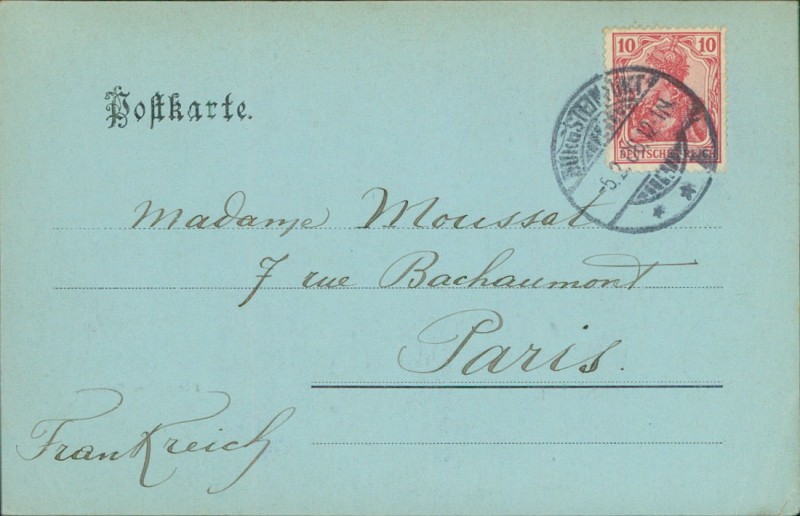 Postkarte.
10 10
DEUTSCHES REICH
BURGSTEINFURT
Madame Moussat
7 rue Bachaumont
Paris.
Frankreich